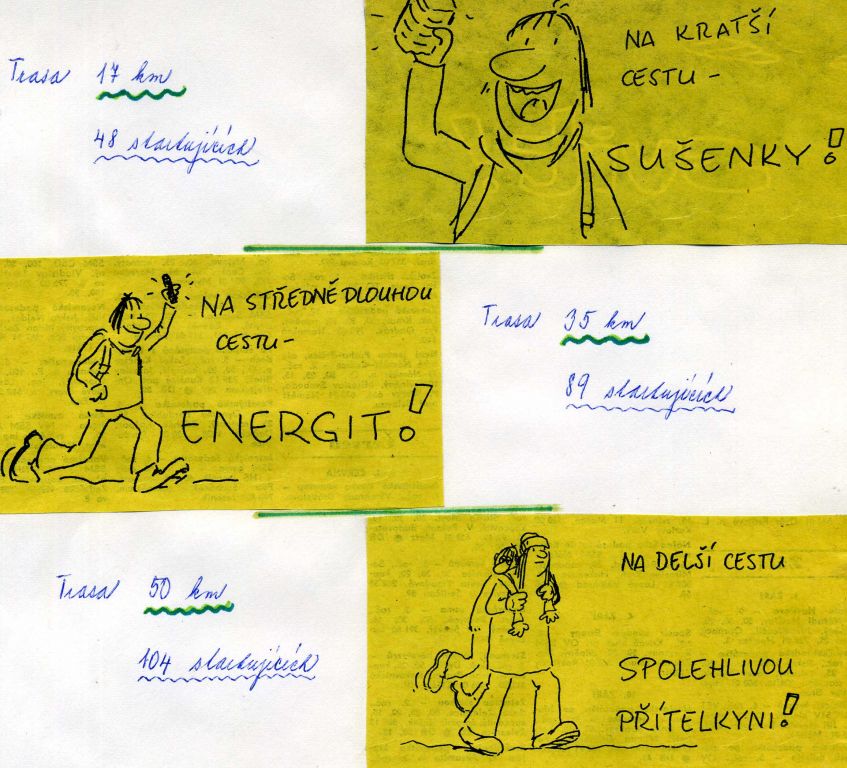 Trasa 17 km
48 startujících
NA KRATŠÍ
CESTU -
SUŠENKY!
NA STŘEDNĚ DLOUHOU
CESTU -
ENERGIT!
Trasa 35 km
89 startujících
Trasa 50 km
104 startujících
NA DELŠÍ CESTU
SPOLEHLIVOU
PŘÍTELKYNI!